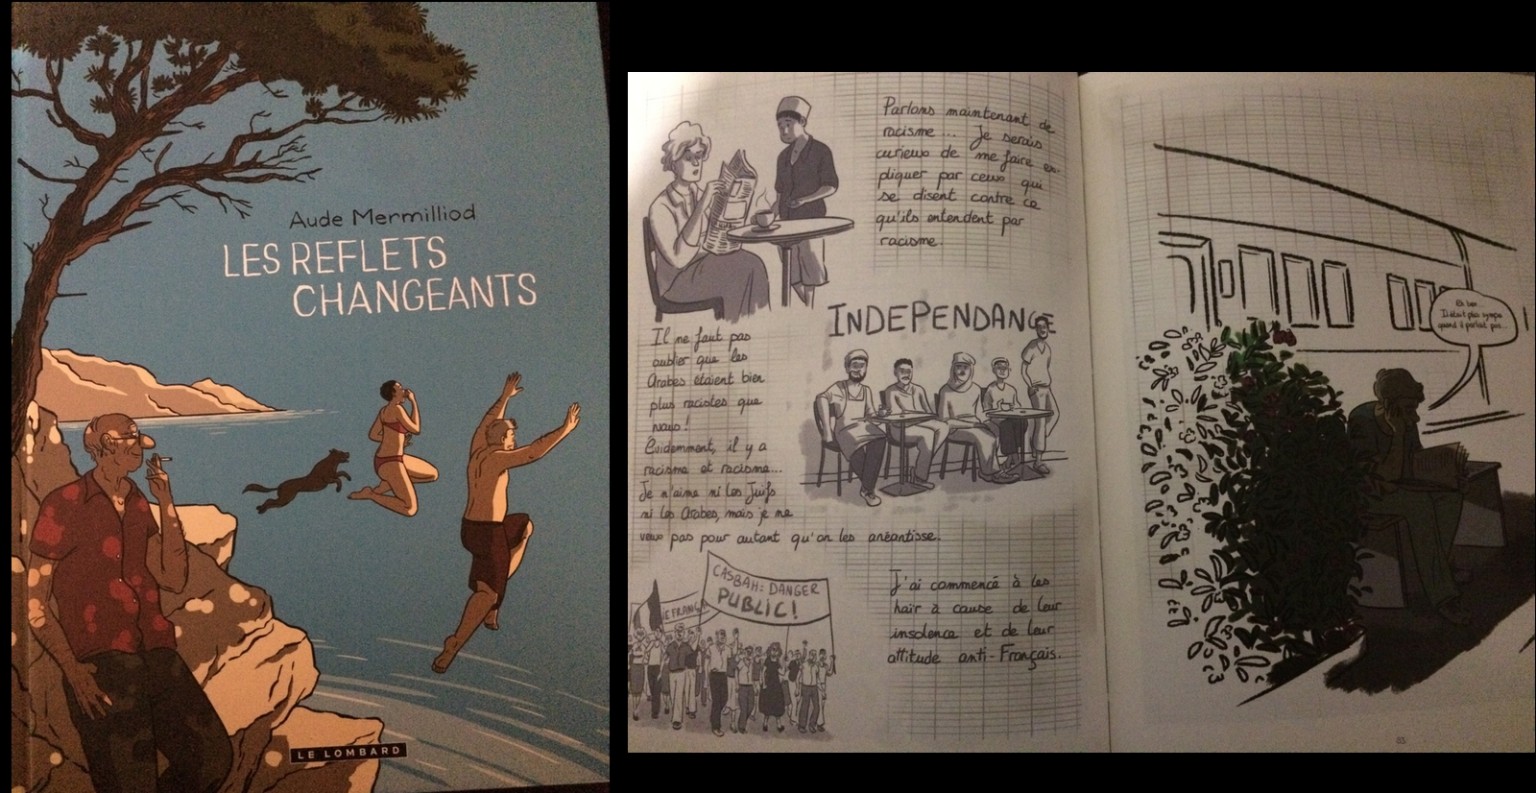 Aude Mermilliod
LES REFLETS
CHANGEANTS
LE LOMBARD
Parlons maintenant de
racisme... Je serais
curieux de me faire ex-
pliquer par ceux qui
se disent contre ce
qu'ils entendent par
racisme.
INDEPENDANCE
Il ne faut pas
oublier que les
Arabes étaient bien
plus racistes que
nous !
Evidemment, il y a
racisme et racisme...
Je n'aime ni les Juifs
ni les Arabes, mais je ne
veux pas pour autant qu'on les anéantisse.
CASBAH: DANGER
PUBLIC!
IE FRANÇA
J'ai commencé à les
haïr à cause de leur
insolence et de leur
attitude anti-Français.
Eh ben...
Il était plus sympa
quand il parlait pas...